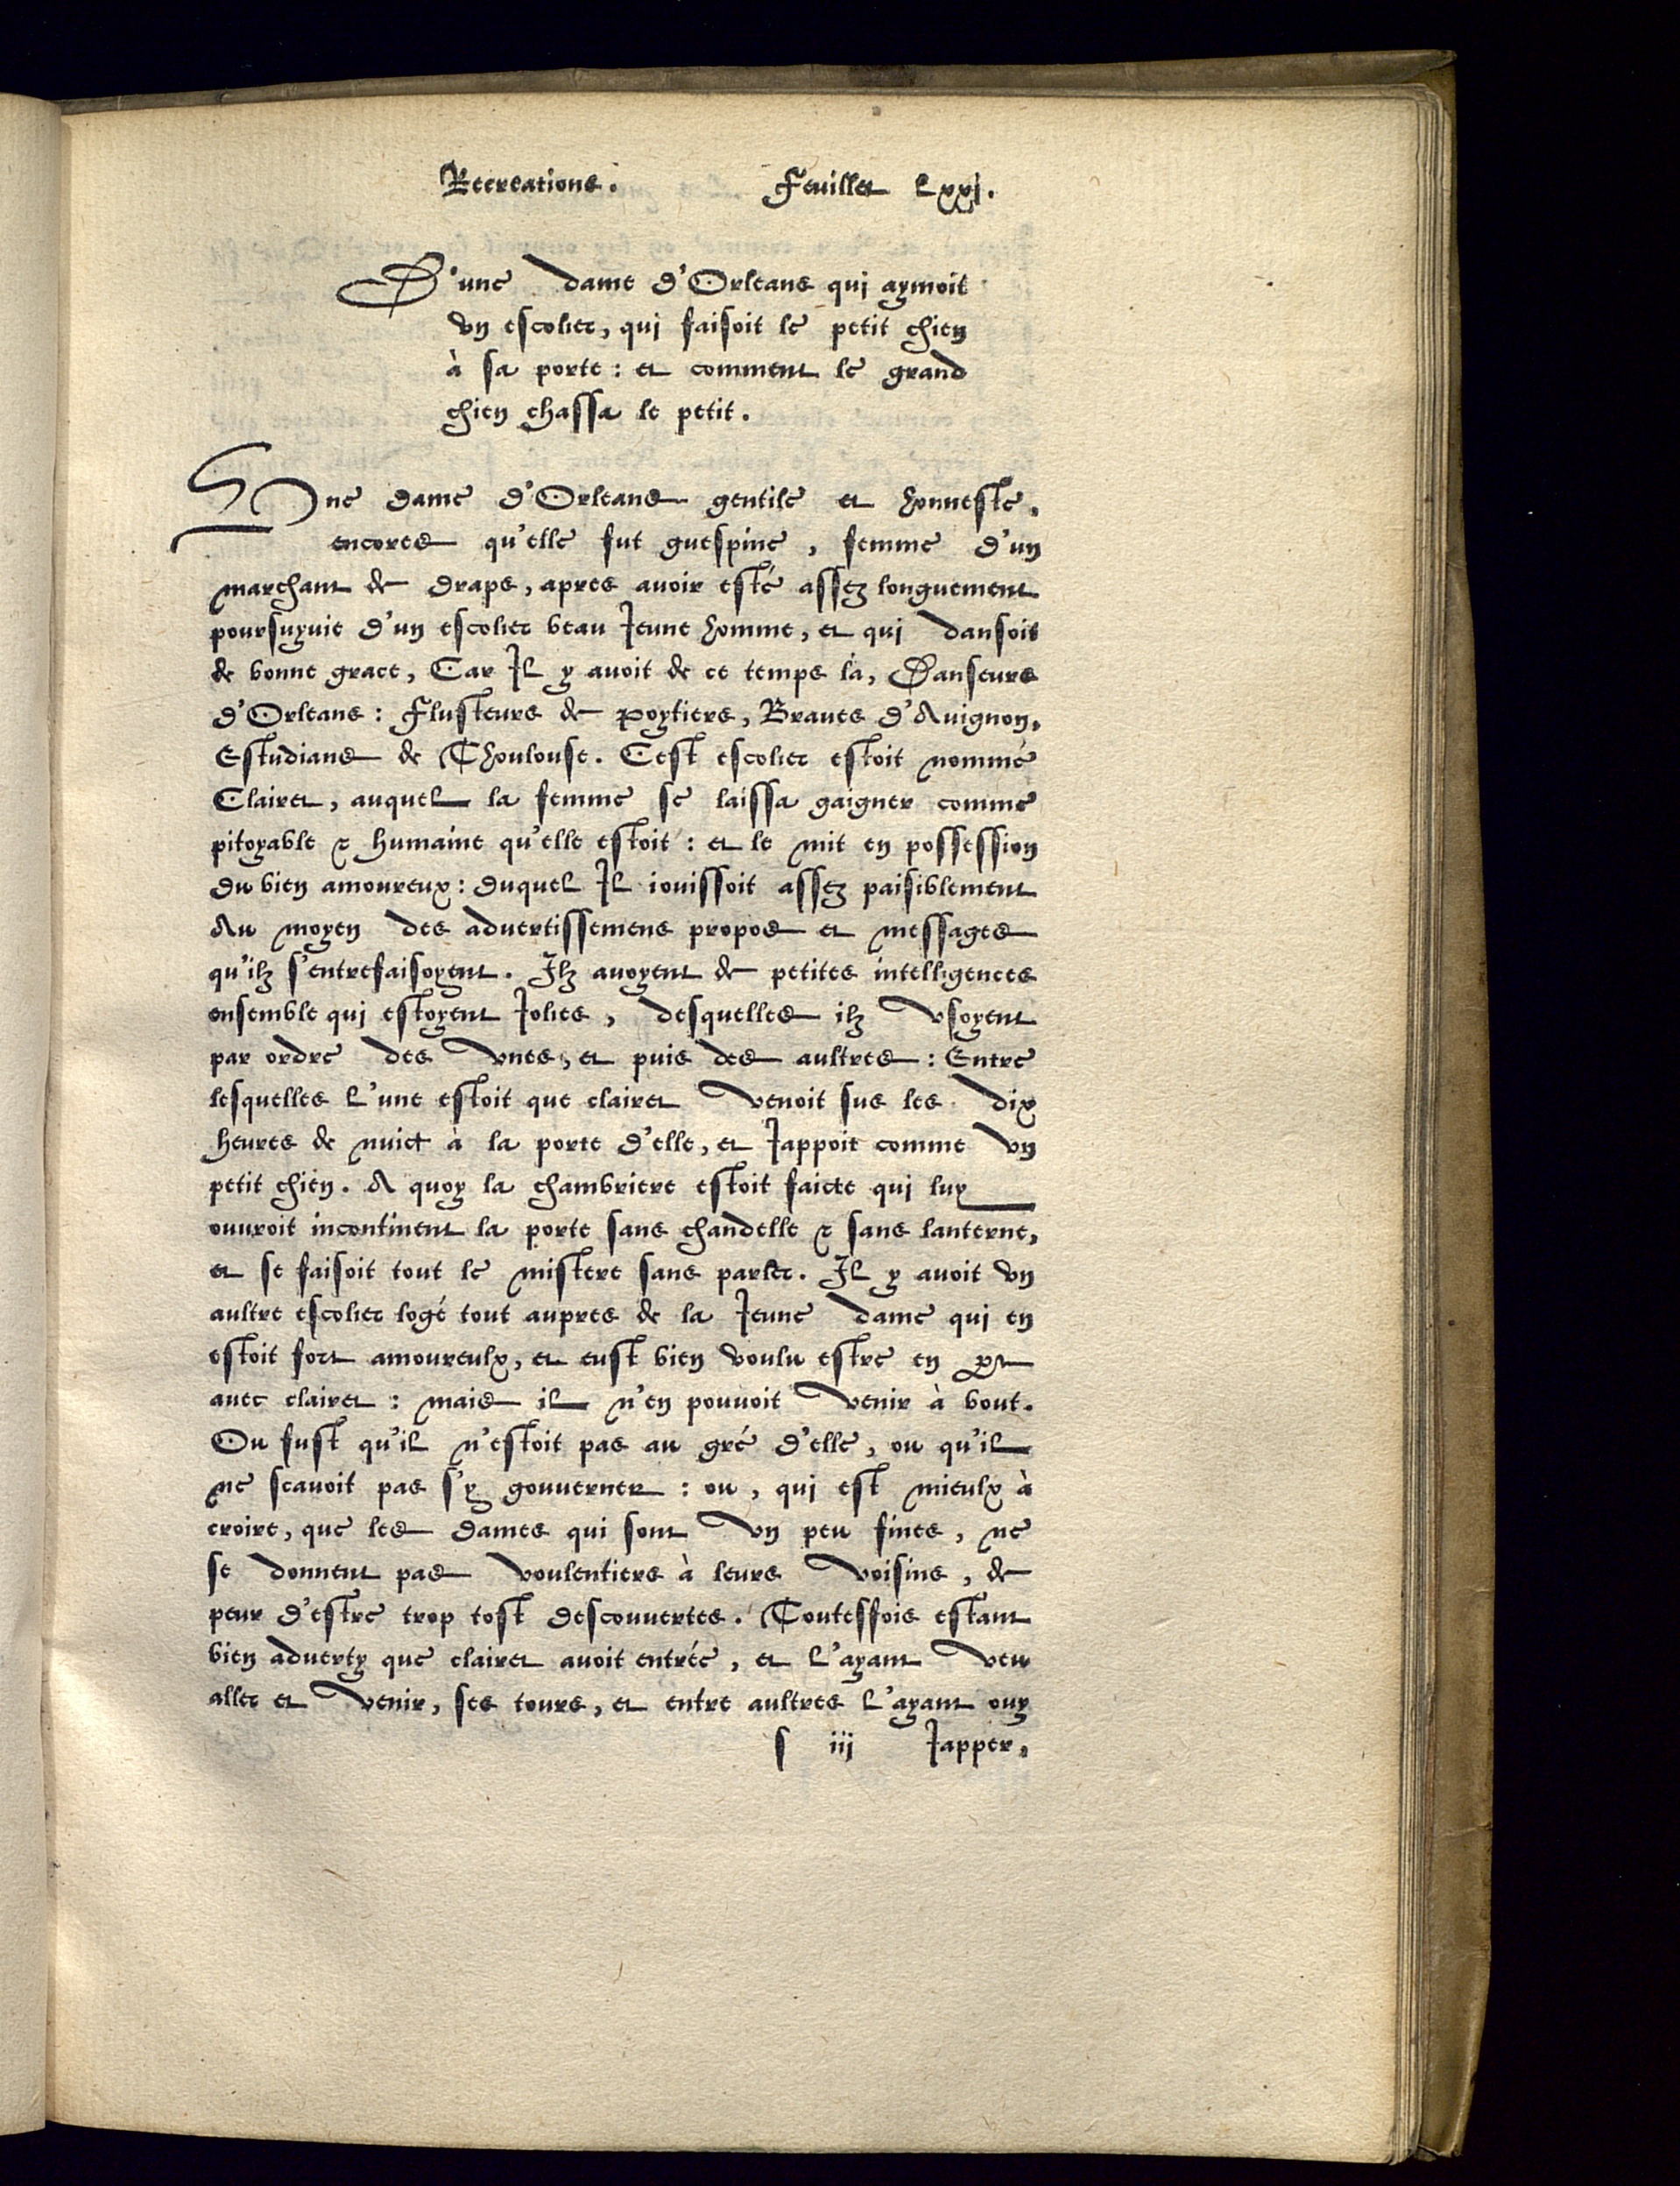 Recreations. Feuillet Lxxj.
D'une dame d'Orleans quj aymoit
vn escolier, quj faisoit le petit chien
à sa porte : et comment le grand
chien chassa le petit.
Vne dame d'Orleans gentile et honneste,
encores qu'elle fut guespine, femme d'un
marchant de draps, apres auoir esté assez longuement
poursuyuie d'un escolier beau Jeune homme, et quj dansoit
de bonne grace, Car Jl y auoit de ce temps la, Danseurs
d'Orleans : Flusteurs de poytiers, Braues d'Auignon,
Estudians de Thoulouse. Cest escolier estoit nommé
Clairet, auquel la femme se laissa gaigner comme
pitoyable & humaine qu'elle estoit : et le mit en possession
du bien amoureux : duquel Jl iouissoit assez paisiblement
Au moyen des aduertissemens propos et messages
qu'ilz s'entrefaisoyent. Jlz auoyent de petites intelligences
ensemble quj estoyent Jolies, desquelles ilz vsoyent
par ordre des vnes, et puis des aultres : Entre
lesquelles l'une estoit que clairet venoit sus les dix
heures de nuict à la porte d'elle, et Jappoit comme vn
petit chien. A quoy la chambriere estoit faicte qui luy
ouuroit incontinent la porte sans chandelle & sans lanterne,
et se faisoit tout le mistere sans parler. Jl y auoit vn
aultre escolier logé tout aupres de la Jeune dame quj en
estoit fort amoureulx, et eust bien voulu estre en part
auec clairet : mais il n'en pouuoit venir à bout.
Ou fust qu'il n'estoit pas au gré d'elle, ou qu'il
ne scauoit pas s'y gouuerner : ou, quj est mieulx à
croire, que les dames qui sont vn peu fines, ne
se donnent pas voulentiers à leurs voisins, de
peur d'estre trop tost descouuertes. Toutesfois estant
bien aduerty que clairet auoit entrée, et l'ayant veu
aller et venir, ses tours, et entre aultres l'ayant ouy
s iij Japper,